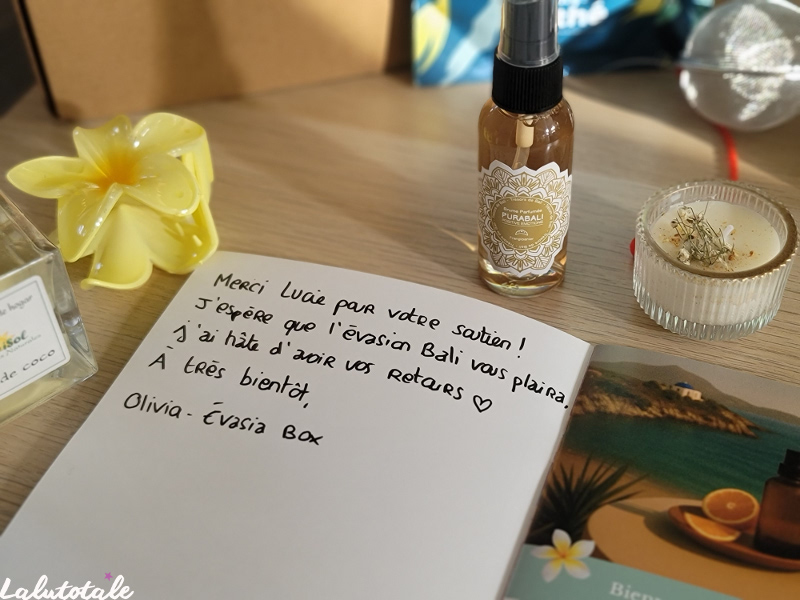 thé
PURABALI
de coco
Merci Lucie pour votre soutien !
J'espère que l'évasion Bali vous plaira.
J'ai hâte d'avoir vos retours ♡
À très bientôt,
Olivia - Évasia Box
Lalutotale